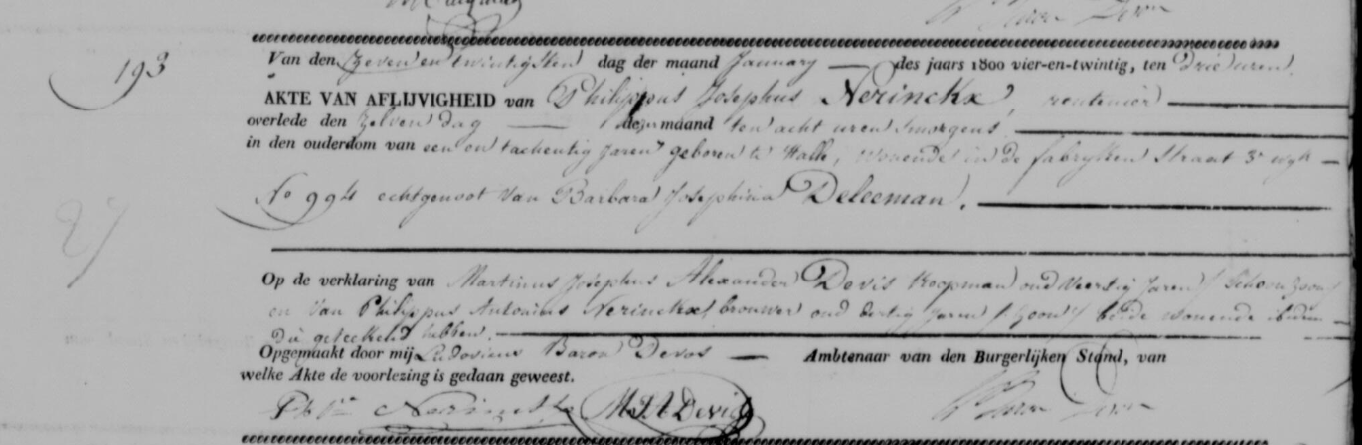 193
Van den zeven en twintigsten dag der maand January des jaars 1800 vier-en-twintig, ten drie uren,
AKTE VAN AFLIJVIGHEID van Philippus Josephus Nerinckx, rentenier
overlede den zelven dag dezer maand ten acht uren smorgens
in den ouderdom van een en tachentig jaren geboren te Halle, wonende in de fabryken straat 3e wyk
No 994 echtgenoot van Barbara Josephina Deleeman.
27
Op de verklaring van Martinus Josephus Alexander Devis koopman oud veertig jaren (schoonzoon)
en van Philippus Antonius Nerinckx brouwer oud dertig jaren (zoon) beide wonende ibidem
die geteekend hebben.
Opgemaakt door mij Ludovicus Baron Devos Ambtenaar van den Burgerlijken Stand, van
welke Akte de voorlezing is gedaan geweest.
Ph Nerinckx M J A Devis